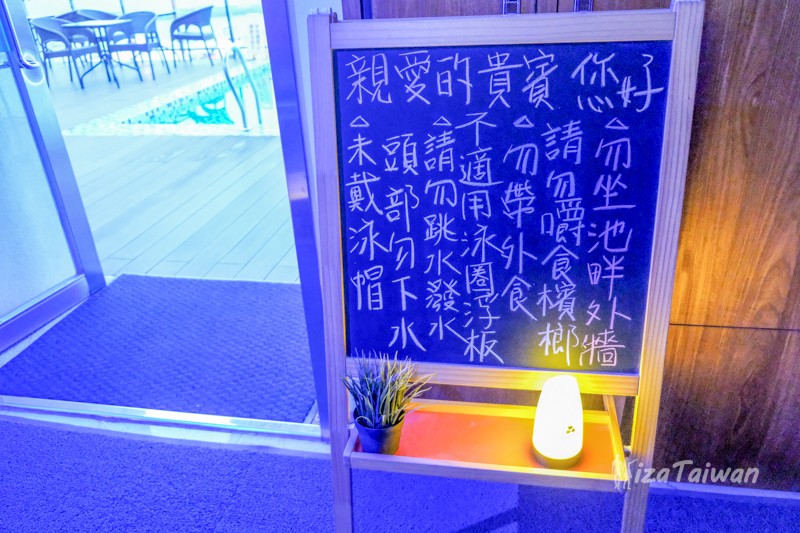 親愛的貴賓 您好
△未戴泳帽
頭部勿下水
△請勿跳水潑水
不適用泳圈浮板
△勿帶外食
請勿嚼食檳榔
△勿坐池畔外牆
MizaTaiwan